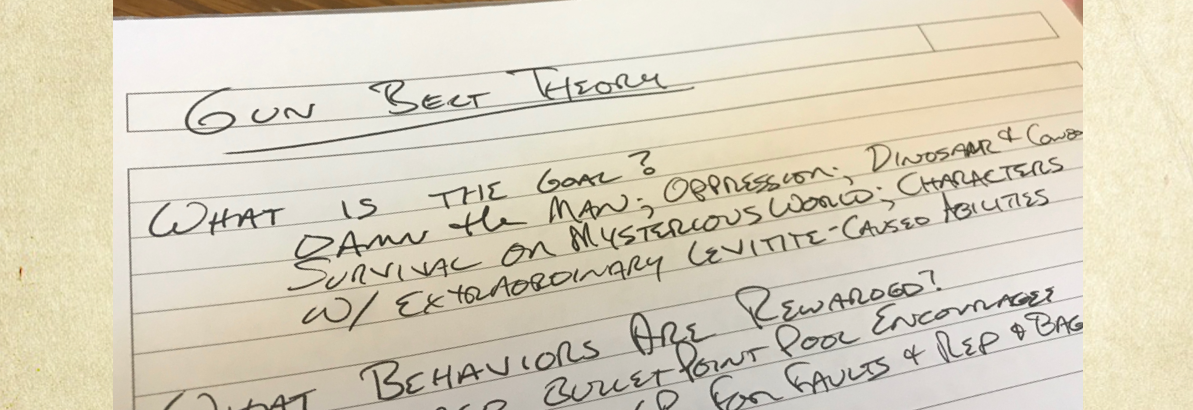 GUN BELT THEORY
WHAT IS THE GOAL?
DAMN the MAN; OPPRESSION; DINOSAUR &
SURVIVAL ON MYSTERIOUS WORLD; CHARACTERS
W/ EXTRAORDINARY LEVITITE-CAUSED ABILITIES
WHAT BEHAVIORS ARE REWARDED?
BULLET POINT POOL ENCOURAGES
FOR FAULTS & REP & BAG